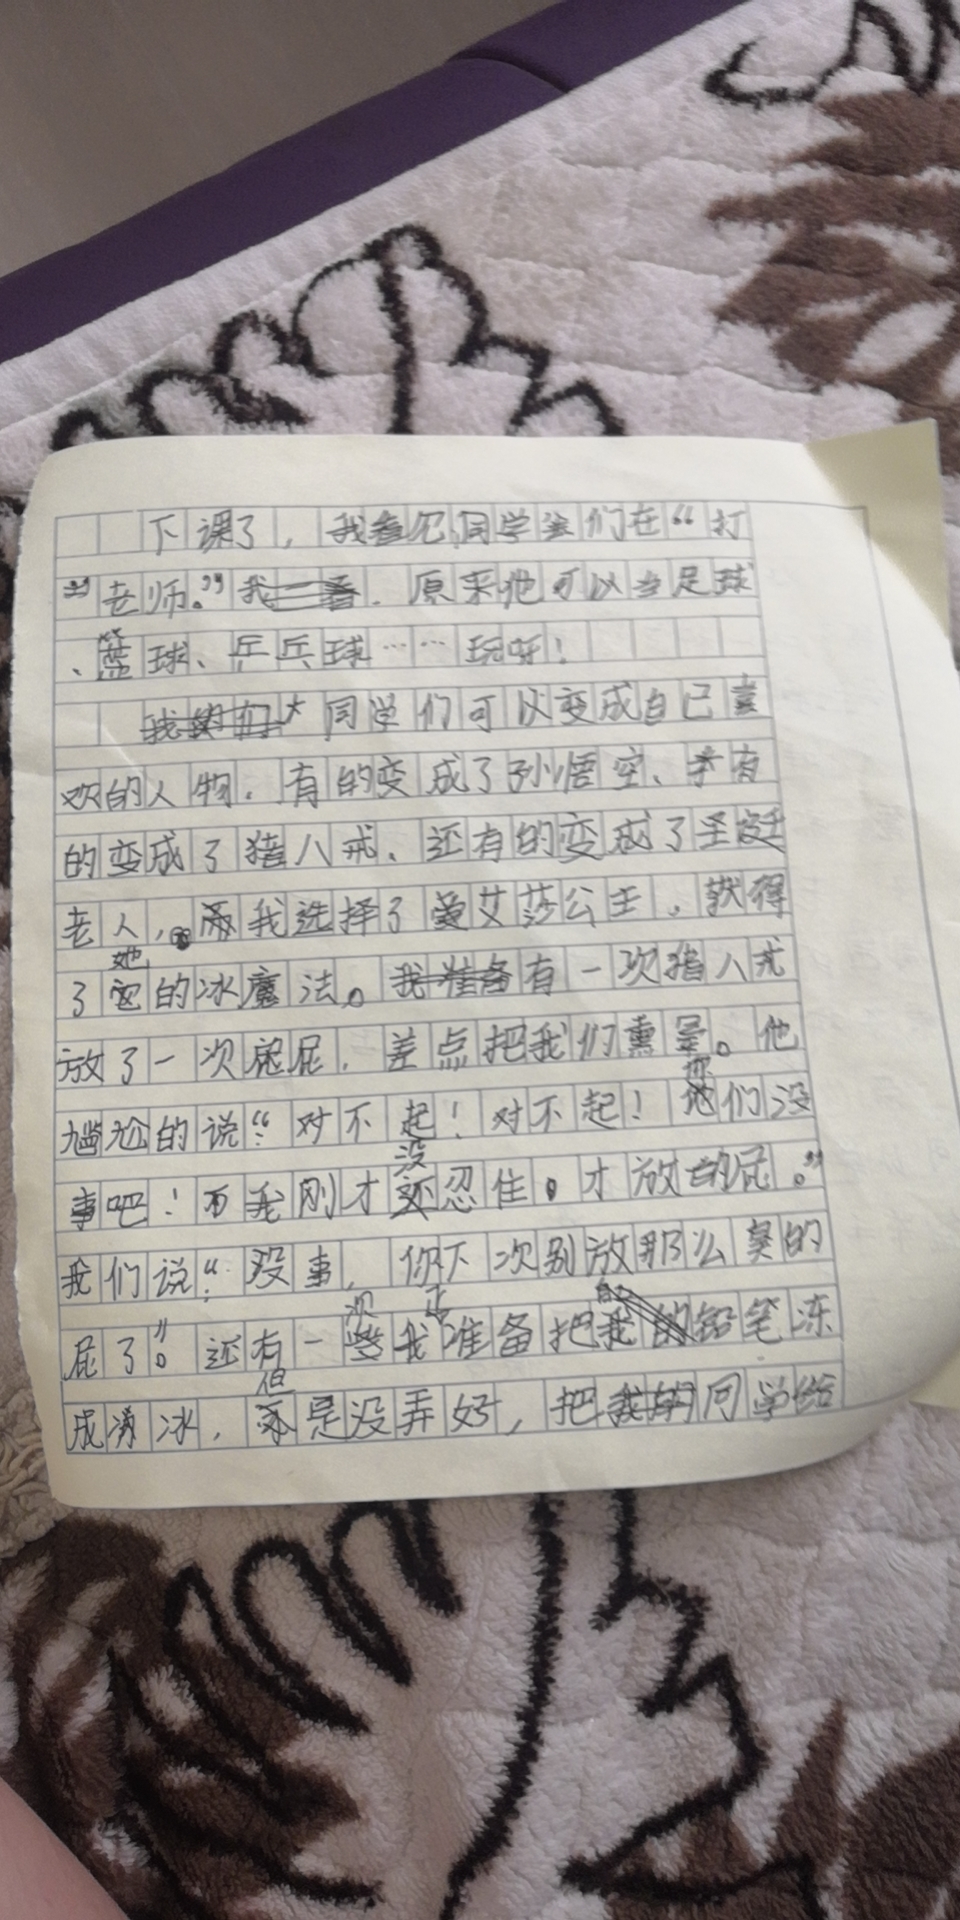 下课了，我看见同学们在“打
“老师。”我一看，原来他可以当足球
、篮球、乒乓球……玩呀！
大同学们可以变成自己喜
欢的人物，有的变成了孙悟空、有
的变成了猪八戒、还有的变成了圣诞
老人，我选择了爱艾莎公主，获得
了她的冰魔法。有一次猪八戒
放了一次屁，差点把我们熏晕。他
尴尬的说“对不起！对不起！你们没
事吧！我刚才没忍住。才放的屁。”
我们说：“没事，你下次别放那么臭的
屁了”。还有一次我正准备把我的铅笔冻
成冰，但是没弄好，把同学给